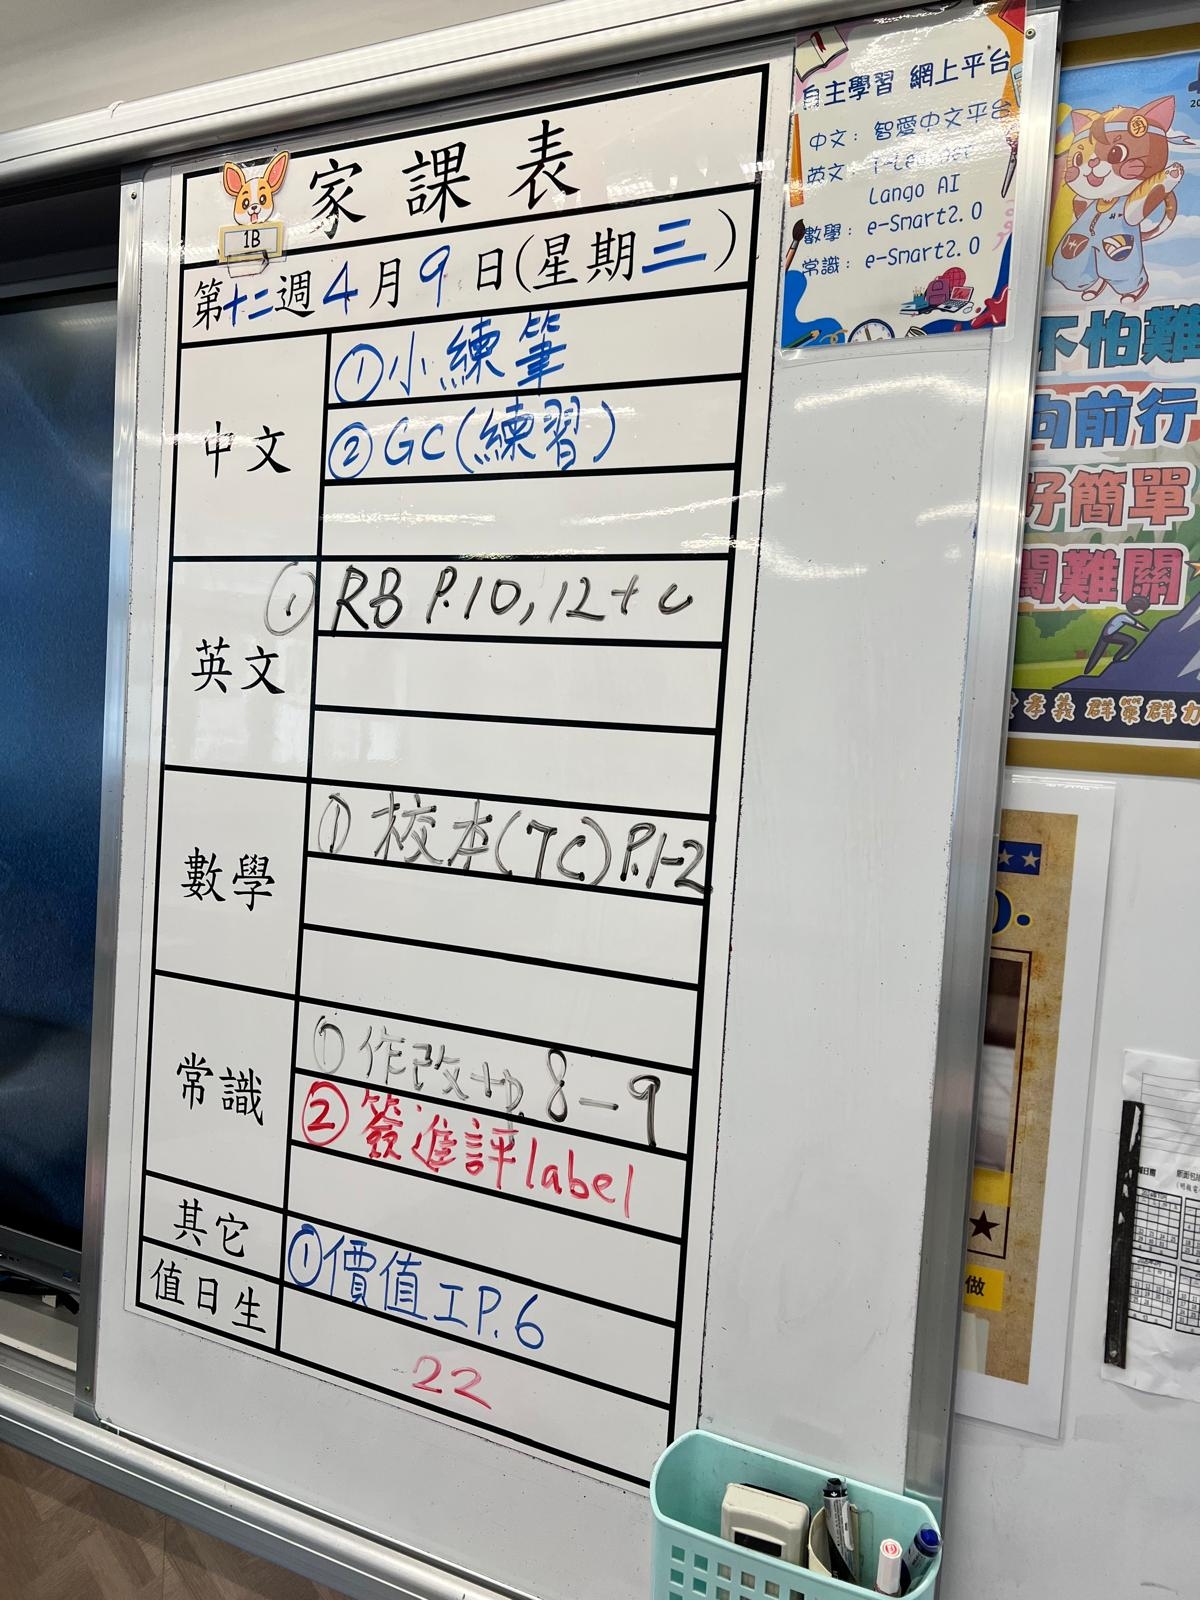 家課表
1B
第十二週4月9日(星期三)
中文
①小練筆
②GC(練習)
英文
① RB P.10,12+c
數學
① 校本(TC)P.1-2
常識
① 作改+p.8-9
②簽進評label
其它
①價值工P.6
值日生
22
自主學習 網上平台
中文：智愛中文平台
英文：
Lango AI
數學：e-Smart2.0
常識：e-Smart2.0
不怕難
向前行
好簡單
闖難關
孝義 群策群力
做